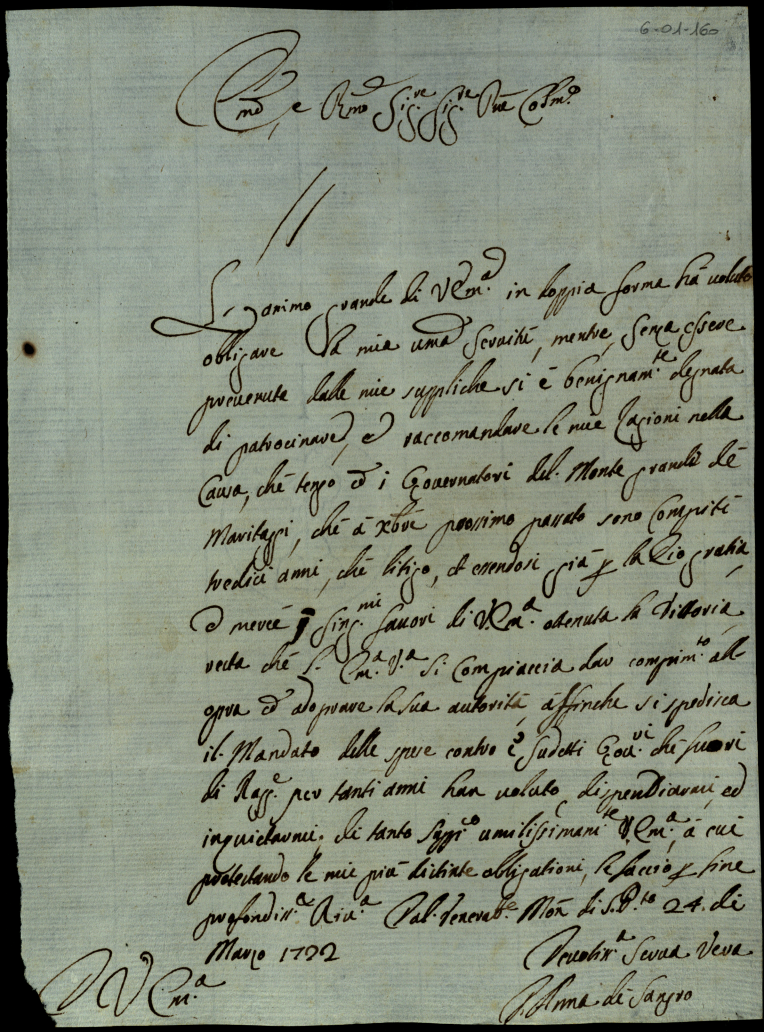 6-01-160
Em.o e Rmo Sig.re Sig.re Pne Colmo
L'animo grande di VEm.a in doppia forma hà voluto
obligare la mia uma Servitù, mentre, senza essere
prevenuta dalle mie suppliche si è benignam.te degnata
di patrocinare, ed raccomandare le mie Ragioni nella
Causa, che tengo cò i Governatori del Monte grande dè
Maritaggi, che à xbre prossimo passato sono compiti
tredici anni, che litigo, et essendosi già p la Dio gratia,
e mercè i sing.mi favori di VEm.a ottenuta la Vittoria,
resta che l'Em.a V.a si compiaccia dar compim.to all'
opra cò adoprare la sua autorità, affinche si spedisca
il Mandato delle spese contro è sudetti Gov.ri che fuori
di Rag.e per tanti anni han voluto dispendiarmi, ed
inquietarmi; di tanto supp.co umilissimam.te VEm.a, à cui
protestando le mie più distinte obligationi, le faccio p fine
profondiss.a Riv.a Dal Venerab.e Mon di S. P.to 24. di
Marzo 1722
Devotiss.a Serva Vera
D VEm.a
D. Anna di Sangro